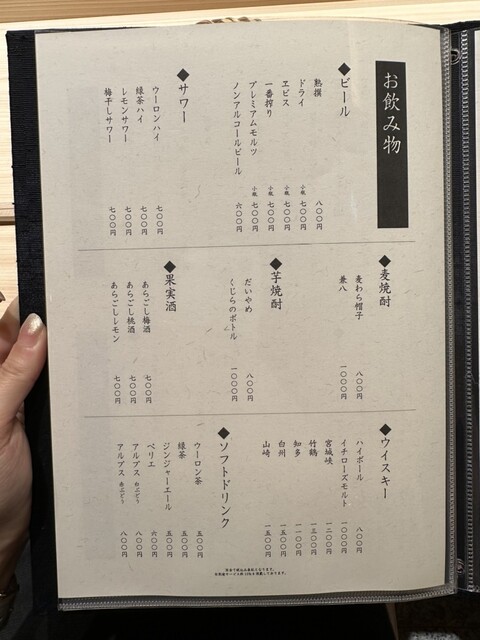 お飲み物
◆ビール
熟撰 八〇〇円
ドライ 小瓶 七〇〇円
ヱビス 小瓶 七〇〇円
一番搾り 小瓶 七〇〇円
プレミアムモルツ 小瓶 七〇〇円
ノンアルコールビール 六〇〇円
◆サワー
ウーロンハイ 七〇〇円
緑茶ハイ 七〇〇円
レモンサワー 七〇〇円
梅干しサワー 七〇〇円
◆麦焼酎
麦わら帽子 八〇〇円
兼八 一〇〇〇円
◆芋焼酎
だいやめ 八〇〇円
くじらのボトル 一〇〇〇円
◆果実酒
あらごし梅酒 七〇〇円
あらごし桃酒 七〇〇円
あらごしレモン 七〇〇円
◆ウイスキー
ハイボール 八〇〇円
イチローズモルト 一〇〇〇円
宮城峡 一二〇〇円
竹鶴 一三〇〇円
知多 一一〇〇円
白州 一五〇〇円
山崎 一五〇〇円
◆ソフトドリンク
ウーロン茶 五〇〇円
緑茶 五〇〇円
ジンジャーエール 五〇〇円
ペリエ 六〇〇円
アルプス 白ぶどう 八〇〇円
アルプス 赤ぶどう 八〇〇円